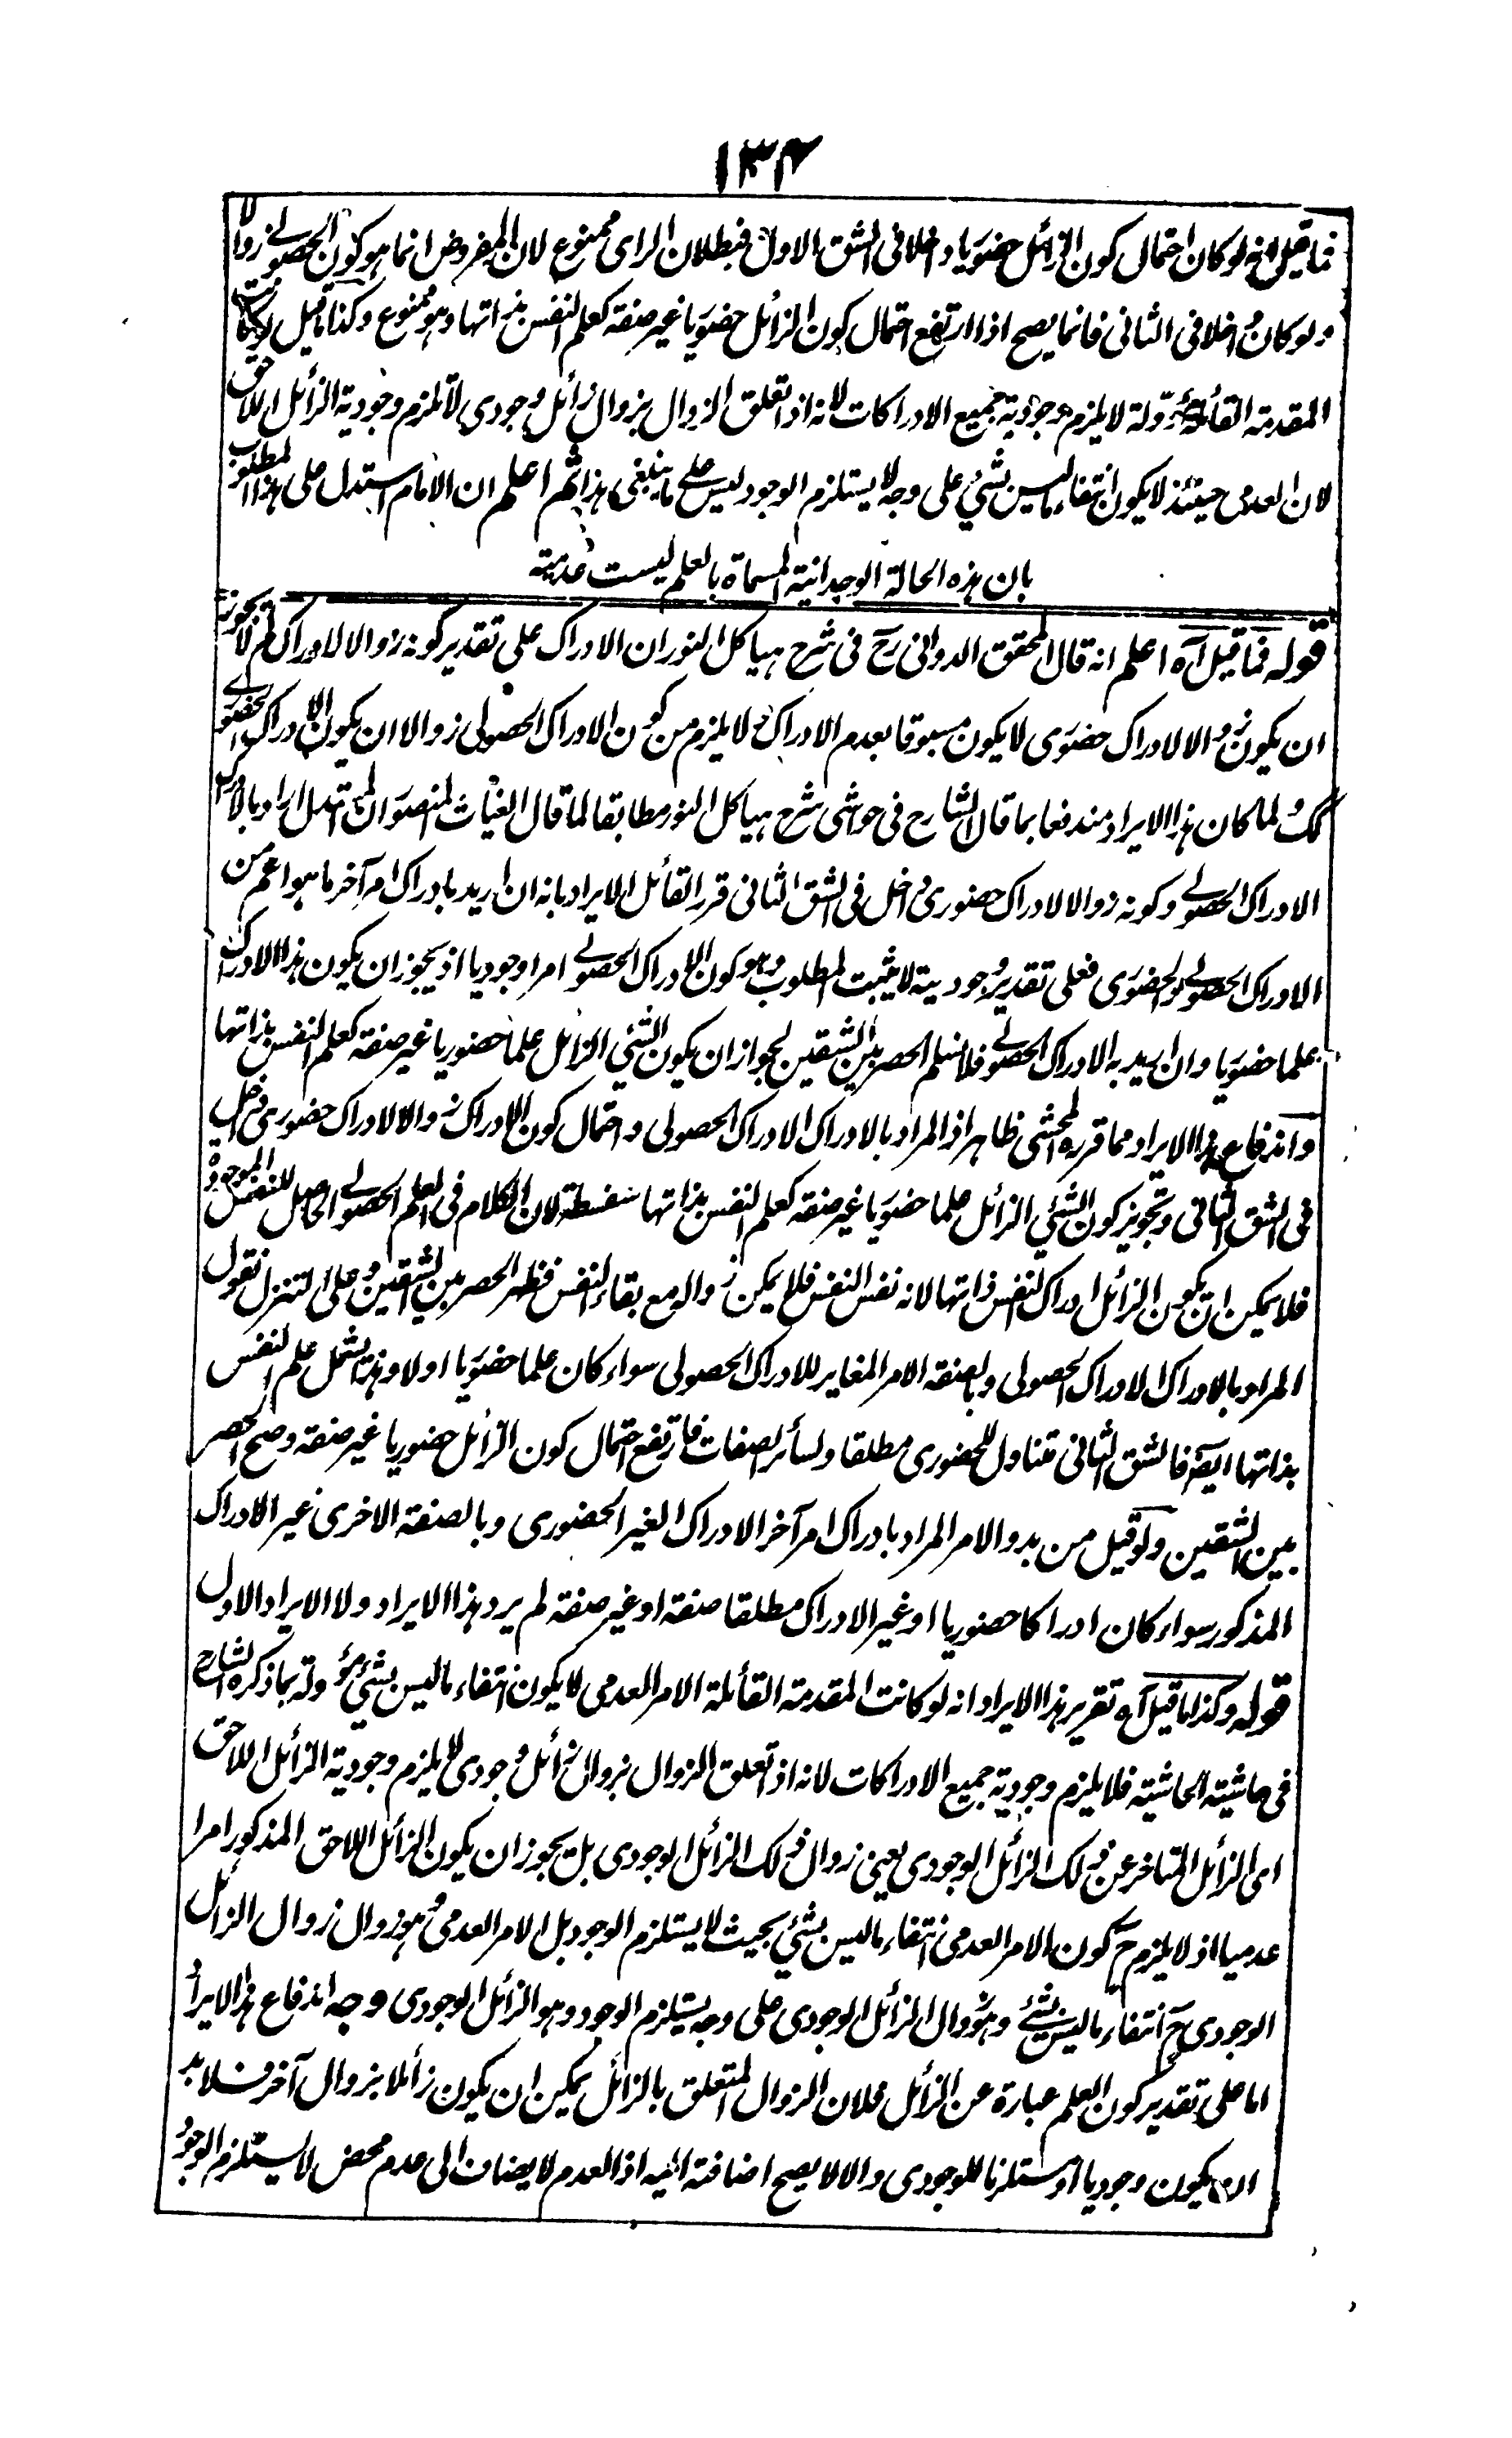 ١٣٤
فما قيل انه لو كان احتمال كون الزائل حضوريا داخلا فى الشق الاول فبطلان الراى ممنوع لان المفروض انما هو كون الحصولى زوالا
ولو كان داخلا فى الثانى فانما يصح اذا ارتفع احتمال كون الزائل حضوريا غير صنفة كعلم النفس بذاتها وهو ممنوع وكذا ما قيل لو كانت
المقدمة القائلة مؤولة لا يلزم وجودية جميع الادراكات لانه اذا تعلق الزوال بزوال زائل وجودى لا يلزم وجودية الزائل اللاحق
لان العدمى حينئذ لا يكون انتفاء ما ليس بشئ على وجه لا يستلزم الوجود ليس على ما ينبغى هذا ثم اعلم ان الامام استدل على هذا المطلوب
بان هذه الحالة الوجدانية المسماة بالعلم ليست عدمية
قوله فما قيل آه اعلم انه قال المحقق الدوانى رح فى شرح هياكل النور ان الادراك على تقدير كونه زوالا لادراك لم لا يجوز
ان يكون زوالا لادراك حضورى لا يكون مسبوقا بعدم الادراك ولا يلزم من كون الادراك الحصولى زوالا ان يكون الادراك الحضورى
كك ولما كان هذا الايراد مندفعا بما قال الشارح فى حواشى شرح هياكل النور مطابقا لما قال الغياث المنصور ان المستدل اراد بالادراك
الادراك الحصولى وكونه زوالا لادراك حضورى داخل فى الشق الثانى قرر القائل الايراد بانه ان اريد بادراك امر آخر ما هو اعم من
الادراك الحصولى والحضورى فعلى تقدير وجودية لا يثبت المطلوب وهو كون الادراك الحصولى امرا وجوديا اذ يجوز ان يكون هذا الادراك
علما حضوريا وان اريد به الادراك الحصولى فلا نسلم الحصر بين الشقين لجواز ان يكون الشئ الزائل علما حضوريا غير صنفة كعلم النفس بذاتها
واندفاع هذا الايراد مما قرره المحشى ظاهر اذ المراد بالادراك الادراك الحصولى واحتمال كون الادراك زوالا لادراك حضورى داخل
فى الشق الثانى وتجويز كون الشئ الزائل علما حضوريا غير صنفة كعلم النفس بذاتها سفسطة لان الكلام فى العلم الحصولى الحاصل للنفس الموجودة
فلا يمكن ان يكون الزائل ادراك النفس ذاتها لانه نفس النفس فلا يمكن زواله مع بقاء النفس فظهر الحصر بين الشقين وعلى التنزل نقول
المراد بالادراك الادراك الحصولى وبالصنفة الامر المغاير للادراك الحصولى سواء كان علما حضوريا او لا وهذا يشمل علم النفس
بذاتها ايضا فالشق الثانى متناول للحضورى مطلقا ولسائر الصفات فارتفع احتمال كون الزائل حضوريا غير صنفة وصح الحصر
بين الشقين ولو قيل من بدو الامر المراد بادراك امر آخر الادراك الغير الحضورى وبالصنفة الاخرى غير الادراك
المذكور سواء كان ادراكا حضوريا او غير الادراك مطلقا صنفة او غير صنفة لم يرد هذا الايراد ولا الايراد الاول
قوله وكذا ما قيل آه تقرير هذا الايراد انه لو كانت المقدمة القائلة الامر العدمى لا يكون انتفاء ما ليس بشئ مؤولة بما ذكره الشارح
فى حاشية الحاشية فلا يلزم وجودية جميع الادراكات لانه اذ تعلق الزوال بزوال زائل وجودى لا يلزم وجودية الزائل اللاحق
اى الزائل المتاخر عن ذلك الزائل الوجودى يعنى زوال ذلك الزائل الوجودى بل يجوز ان يكون الزائل اللاحق المذكور امرا
عدميا اذ لا يلزم ح كون الامر العدمى انتفاء ما ليس بشئ بحيث لا يستلزم الوجود بل الامر العدمى وهو زوال زوال الزائل
الوجودى ح انتفاء ما ليس بشئ وهو زوال الزائل الوجودى على وجه يستلزم الوجود وهو الزائل الوجودى وجه اندفاع هذا الايراد
اما على تقدير كون العلم عبارة عن الزائل فلان الزوال المتعلق بالزائل يمكن ان يكون زائلا بزوال آخر فلا بد
ان يكون وجوديا او مستلزما للوجودى والا لا يصح اضافته اليه اذ العدم لا يضاف الى عدم محض لا يستلزم الوجود